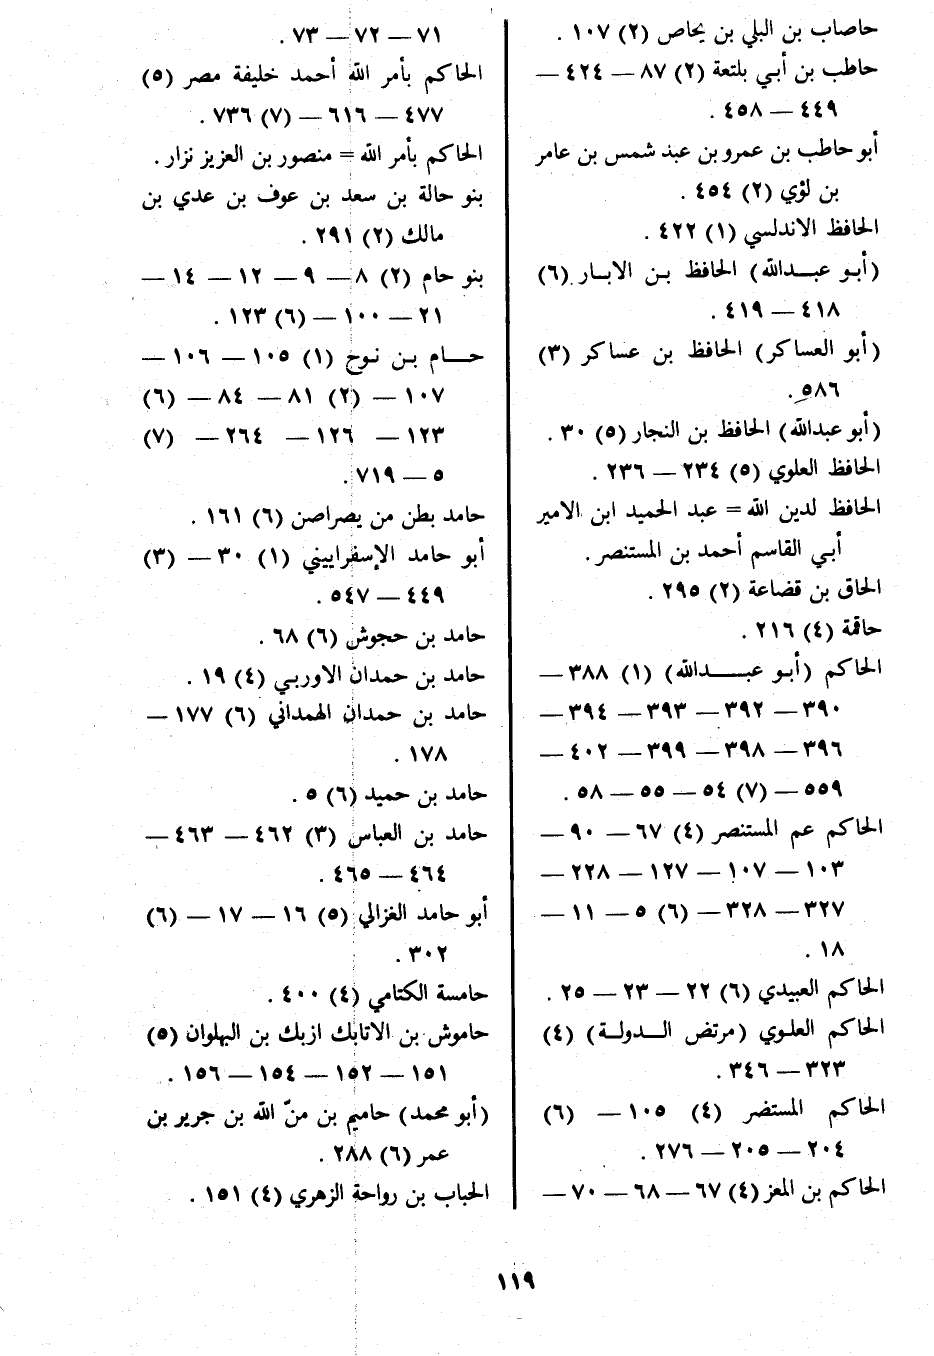 حاصاب بن البلي بن يحاص (٢) ١٠٧ .
حاطب بن أبي بلتعة (٢) ٨٧ — ٤٢٤ —
٤٤٩ — ٤٥٨ .
أبو حاطب بن عمرو بن عبد شمس بن عامر
بن لؤي (٢) ٤٥٤ .
الحافظ الاندلسي (١) ٤٢٢ .
(أبو عبدالله) الحافظ بن الابار (٦)
٤١٨ — ٤١٩ .
(أبو العساكر) الحافظ بن عساكر (٣)
٥٨٦ .
(أبو عبدالله) الحافظ بن النجار (٥) ٣٠ .
الحافظ العلوي (٥) ٢٣٤ — ٢٣٦ .
الحافظ لدين الله = عبد الحميد ابن الامير
أبي القاسم أحمد بن المستنصر .
الحاق بن قضاعة (٢) ٢٩٥ .
حاقمة (٤) ٢١٦ .
الحاكم (أبو عبدالله) (١) ٣٨٨ —
٣٩٠ — ٣٩٢ — ٣٩٣ — ٣٩٤ —
٣٩٦ — ٣٩٨ — ٣٩٩ — ٤٠٢ —
٥٥٩ — (٧) ٥٤ — ٥٥ — ٥٨ .
الحاكم عم المستنصر (٤) ٦٧ — ٩٠ —
١٠٣ — ١٠٧ — ١٢٧ — ٢٢٨ —
٣٢٧ — ٣٢٨ — (٦) ٥ — ١١ —
١٨ .
الحاكم العبيدي (٦) ٢٢ — ٢٣ — ٢٥ .
الحاكم العلوي (مرتض الدولة) (٤)
٣٢٣ — ٣٤٦ .
الحاكم المستضر (٤) ١٠٥ — (٦)
٢٠٤ — ٢٠٥ — ٢٧٦ .
الحاكم بن المعز (٤) ٦٧ — ٦٨ — ٧٠ —
٧١ — ٧٢ — ٧٣ .
الحاكم بأمر الله أحمد خليفة مصر (٥)
٤٧٧ — ٦١٦ — (٧) ٧٣٦ .
الحاكم بأمر الله = منصور بن العزيز نزار .
بنو حالة بن سعد بن عوف بن عدي بن
مالك (٢) ٢٩١ .
بنو حام (٢) ٨ — ٩ — ١٢ — ١٤ —
٢١ — ١٠٠ — (٦) ١٢٣ .
حام بن نوح (١) ١٠٥ — ١٠٦ —
١٠٧ — (٢) ٨١ — ٨٤ — (٦)
١٢٣ — ١٢٦ — ٢٦٤ — (٧)
٥ — ٧١٩ .
حامد بطن من يصراصن (٦) ١٦١ .
أبو حامد الإسفراييني (١) ٣٠ — (٣)
٤٤٩ — ٥٤٧ .
حامد بن حجوش (٦) ٦٨ .
حامد بن حمدان الاوربي (٤) ١٩ .
حامد بن حمدان الهمداني (٦) ١٧٧ —
١٧٨ .
حامد بن حميد (٦) ٥ .
حامد بن العباس (٣) ٤٦٢ — ٤٦٣ —
٤٦٤ — ٤٦٥ .
أبو حامد الغزالي (٥) ١٦ — ١٧ — (٦)
٣٠٢ .
حامسة الكتامي (٤) ٤٠٠ .
حاموش بن الاتابك ازبك بن البهلوان (٥)
١٥١ — ١٥٢ — ١٥٤ — ١٥٦ .
(أبو محمد) حاميم بن منّ الله بن جرير بن
عمر (٦) ٢٨٨ .
الحباب بن رواحة الزهري (٤) ١٥١ .
١١٩